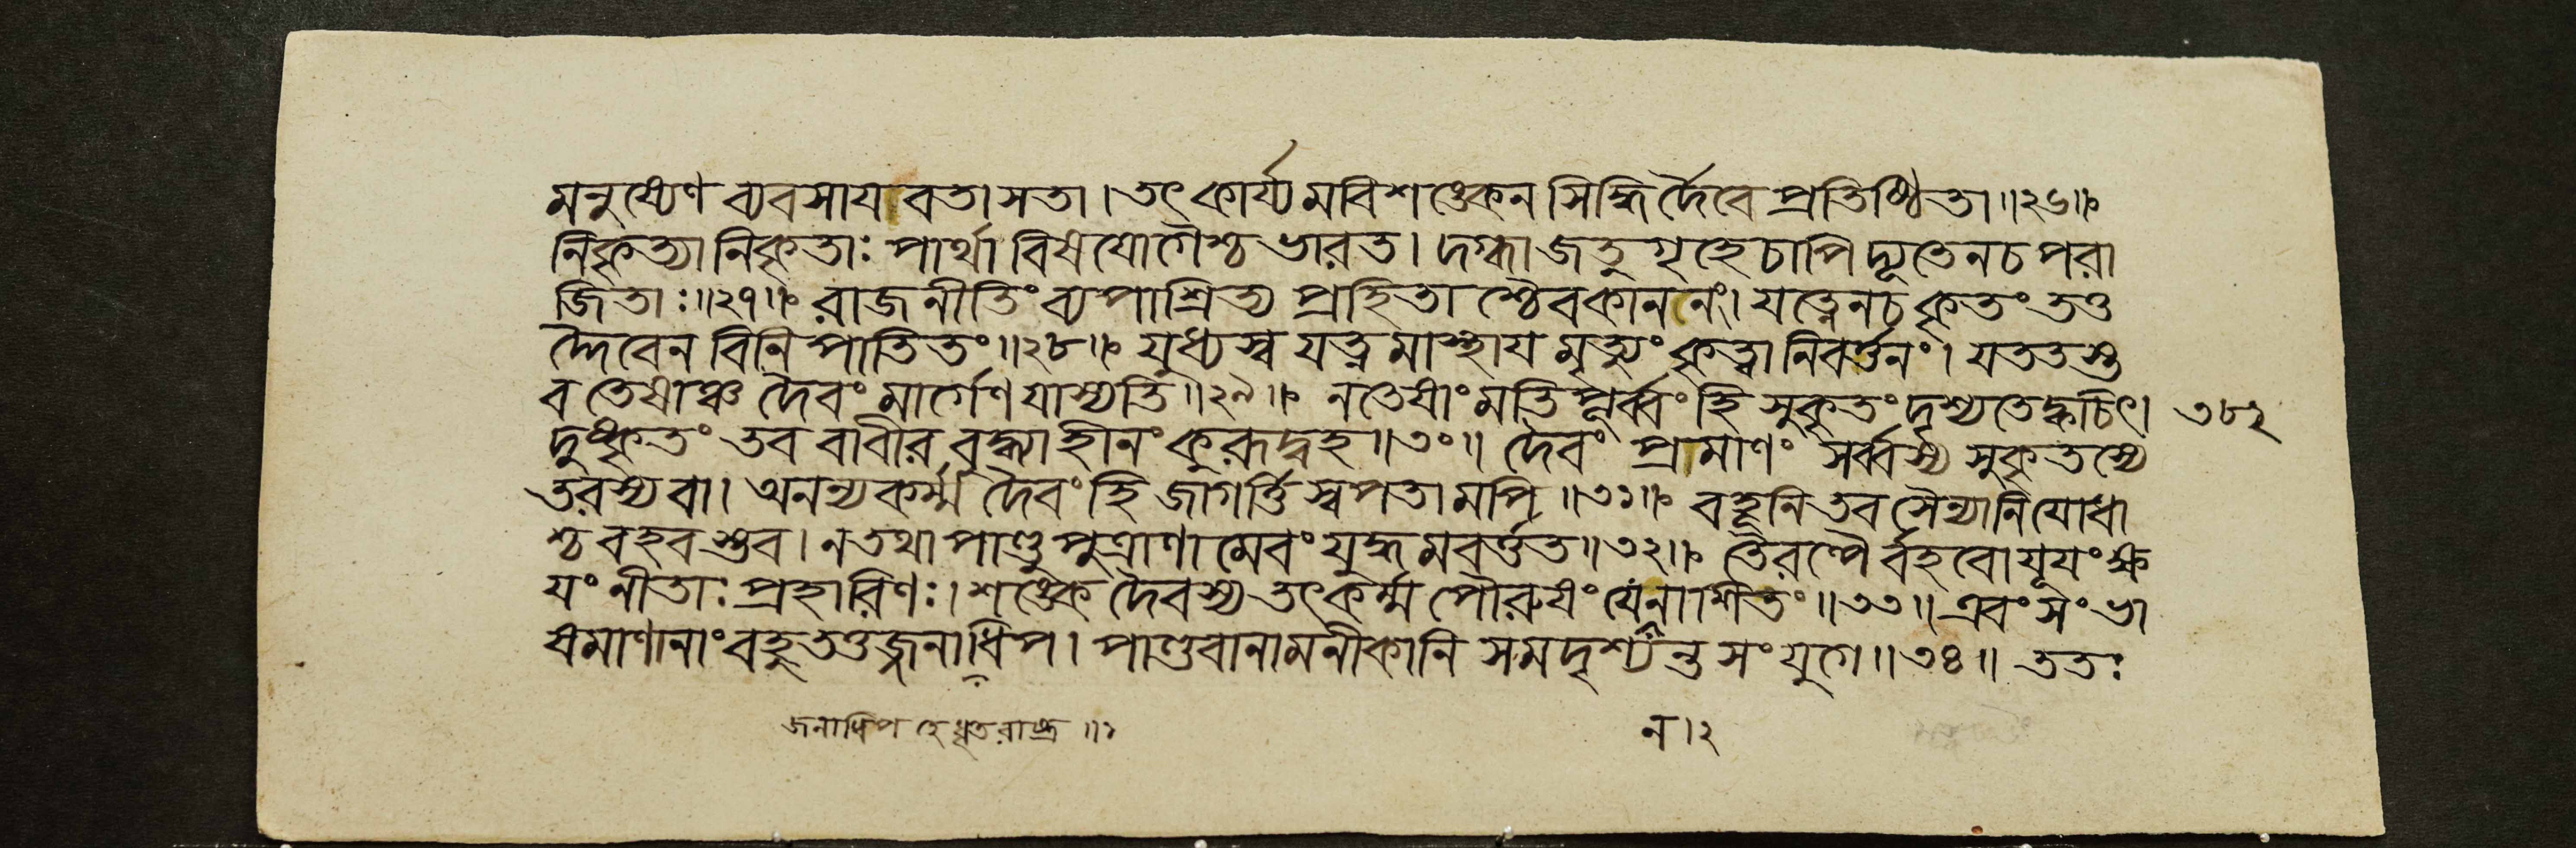 মনুষ্যেণ ব্যবসায়াবতা সতা। তৎ কার্য্যমবিশঙ্কেন সিদ্ধির্দৈবে প্রতিষ্ঠিতা॥২৬॥
নিকৃত্যা নিকৃতাঃ পার্থা বিষযোগৈশ্চ ভারত। দগ্ধা জতুগৃহে চাপি দ্যূতেন চ পরা
জিতাঃ॥২৭॥ রাজনীতিং ব্যপাশ্রিত্য প্রহিতাশ্চৈব কাননং। যত্নেন চ কৃতং তত্ত
দ্দৈবেন বিনিপাতিতং॥২৮॥ যুধ্যস্ব যত্নমাস্থায় মৃত্যুং কৃত্বা নিবর্ত্তনং। যততস্ত
ব তেষাঞ্চ দৈবং মার্গেণ যাস্যতি॥২৯॥ ন তেষাং মতিপূর্ব্বং হি সুকৃতং দৃশ্যতে ক্বচিৎ। ৩৮২
দুষ্কৃতং তব বা বীর বুদ্ধ্যা হীনং কুরূদ্বহ॥৩০॥ দৈবং প্রমাণং সর্ব্বস্য সুকৃতস্যে
তরস্য বা। অনন্যকর্ম্ম দৈবং হি জাগর্ত্তি স্বপতামপি॥৩১॥ বহূনি তব সৈন্যানি যোধা
শ্চ বহবস্তব। ন তথা পাণ্ডুপুত্রাণামেবং যুদ্ধমবর্ত্তত॥৩২॥ তৈরল্পৈর্বহবো যূয়ং ক্ষ
য়ং নীতাঃ প্রহারিণঃ। শঙ্কে দৈবস্য তৎ কর্ম্ম পৌরুষং যেন নাশিতং॥৩৩॥ এবং সংভা
ষমাণানাং বহু তত্তজ্জনাধিপ। পাণ্ডবানামনীকানি সমদৃশ্যন্ত সংযুগে॥৩৪॥ ততঃ
জনাধিপ হে ধৃতরাষ্ট্র॥১
ন।২